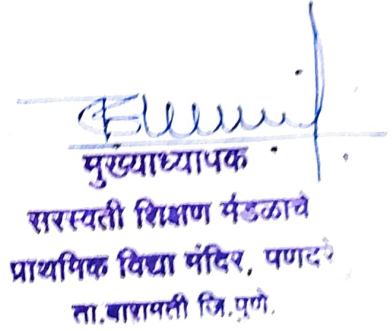 मुख्याध्यापक
सरस्वती शिक्षण मंडळाचे
प्राथमिक विद्या मंदिर, पणदरे
ता.बारामती जि.पुणे.